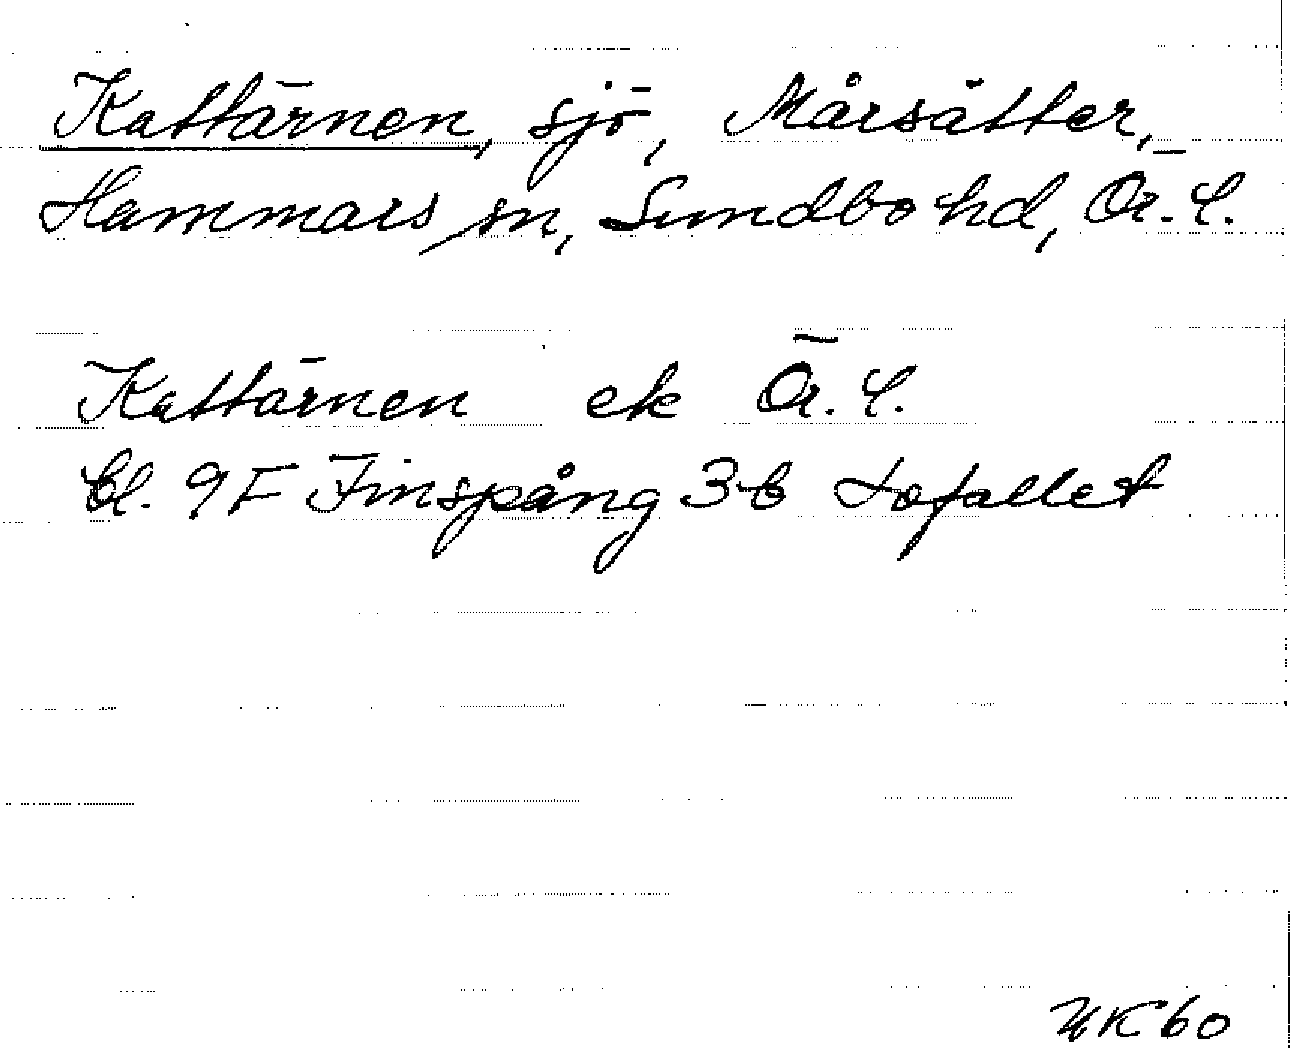 Kattärnen, sjö, Mårsätter,
Hammars sn, Sundbo hd, Ör. l.
Kattärnen ek Ör. l.
bl. 9F Finspång 3b Lofallet
UK 60